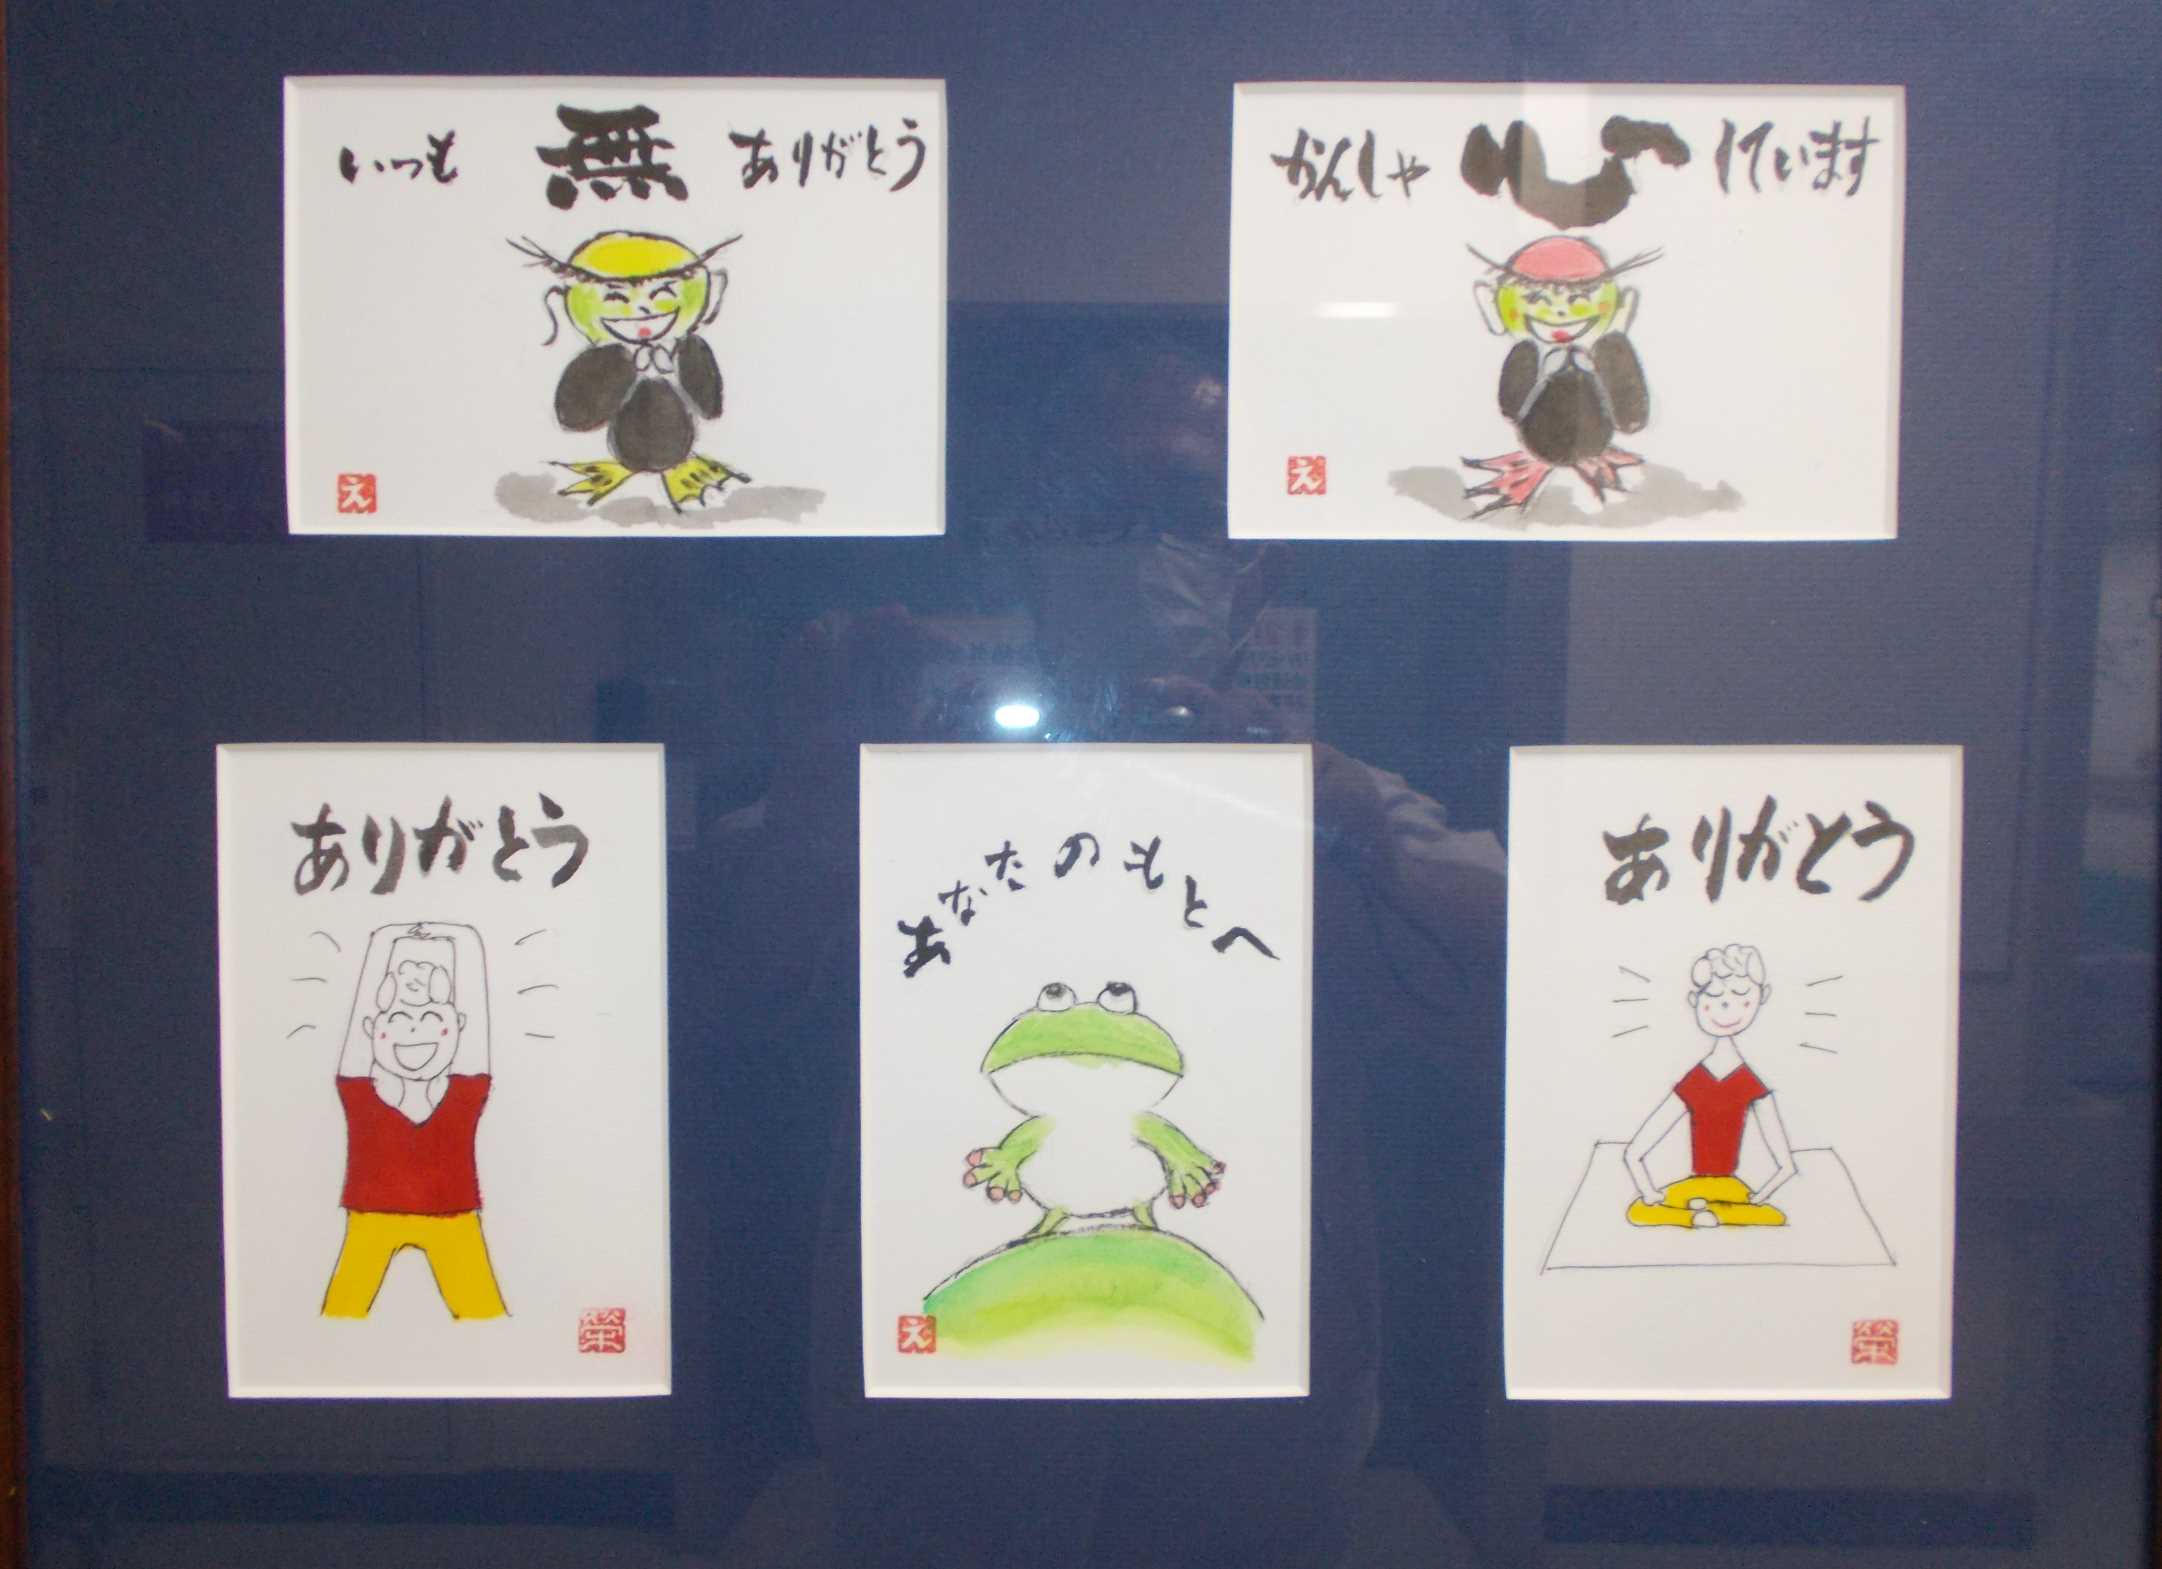 いつも 無 ありがとう
え
かんしゃ 心 しています
え
ありがとう
栄
あなたのもとへ
え
ありがとう
栄